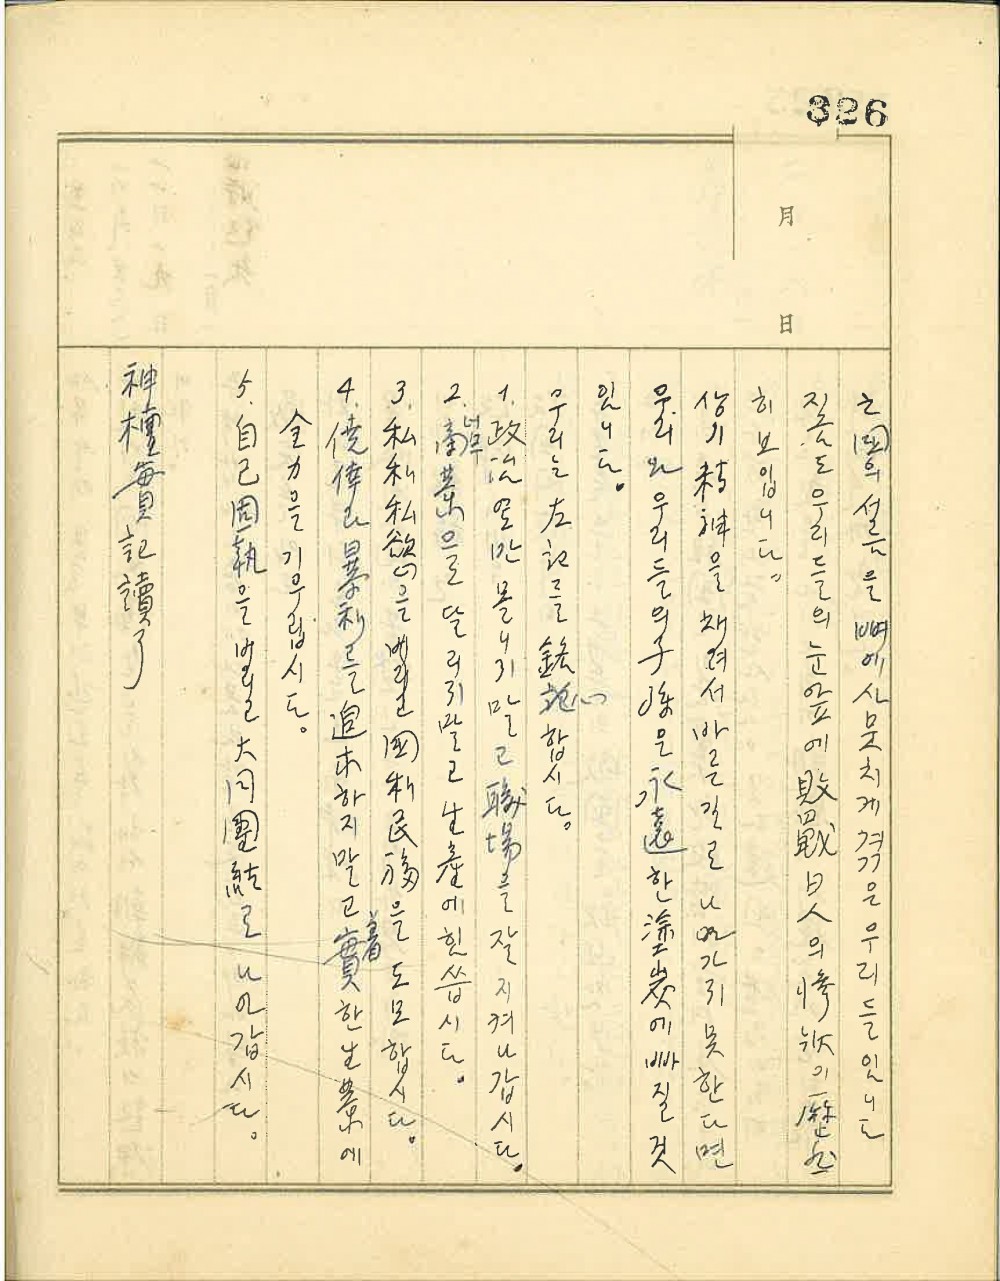 326
月 日
亡國의 설음을 뼈에 사뭇치게 격근 우리들임니다
지금도 우리들의 눈앞에 敗戰日人의 慘狀이 歷歷
히 보입니다.
상기 精神을 채려서 바른길로 나가지 못한다면
우리와 우리들의 子孫은 永遠한 塗炭에 빠질 것
입니다.
우리는 左記를 銘記합시다.
1. 政治열만 몰니지말고 職場을 잘 지켜나갑시다.
2. 너무 商業으로 달리지말고 生産에 힘씁시다.
3. 私利私慾을 버리고 國利民福을 도모합시다.
4. 僥倖과 暴利를 追求하지말고 着實한 生業에
全力을 기우립시다.
5. 自己固執을 버리고 大同團結로 나아갑시다.
神檀實記讀了